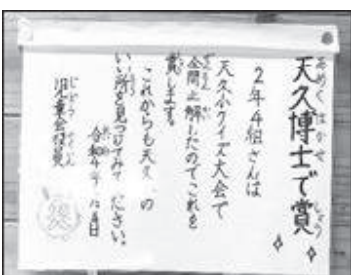 天久博士で賞
あめくはかせ しょう
2年4組さんは
天久小クイズ大会で
全問正解したのでこれを
賞します。
これからも天久 の
いい所を見つけてみて ださい。
令和 年 月 日
児童会役員